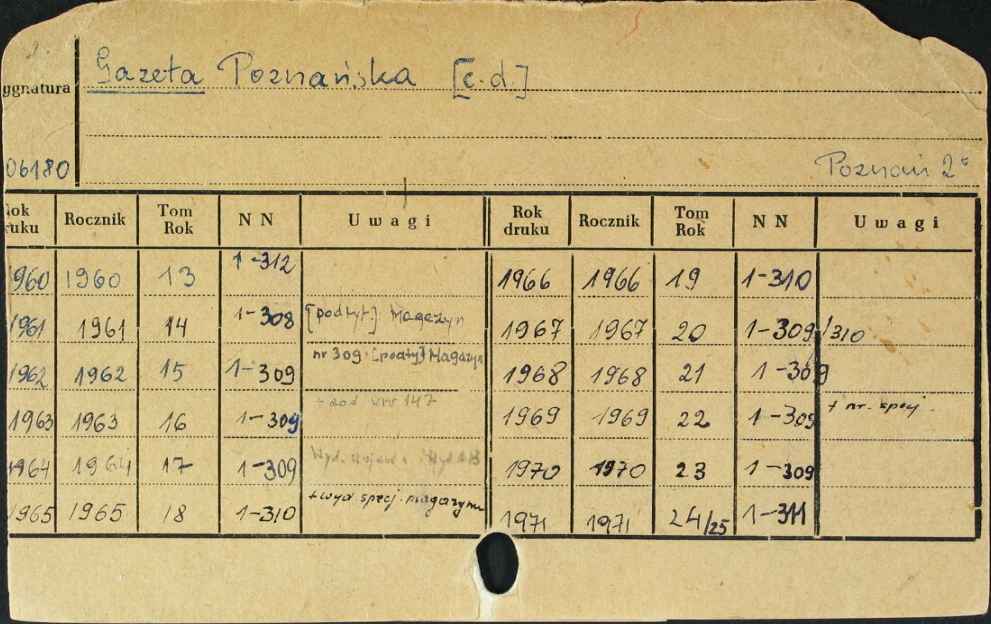 Gazeta Poznańska [c.d]
ygnatura
06180
Poznań 2°
ok druku Rocznik Tom Rok N N Uwagi Rok druku Rocznik Tom Rok N N Uwagi
1960 1960 13 1-312 1966 1966 19 1-310
1961 1961 14 1-308 [podtyt] Magazyn 1967 1967 20 1-309/310
1962 1962 15 1-309 nr 309 [podtyt] Magazyn 1968 1968 21 1-309
1963 1963 16 1-309 1969 1969 22 1-309 + nr. specj.
1964 1964 17 1-309 1970 1970 23 1-309
1965 1965 18 1-310 + wyd specj. magazynu 1971 1971 24/25 1-311